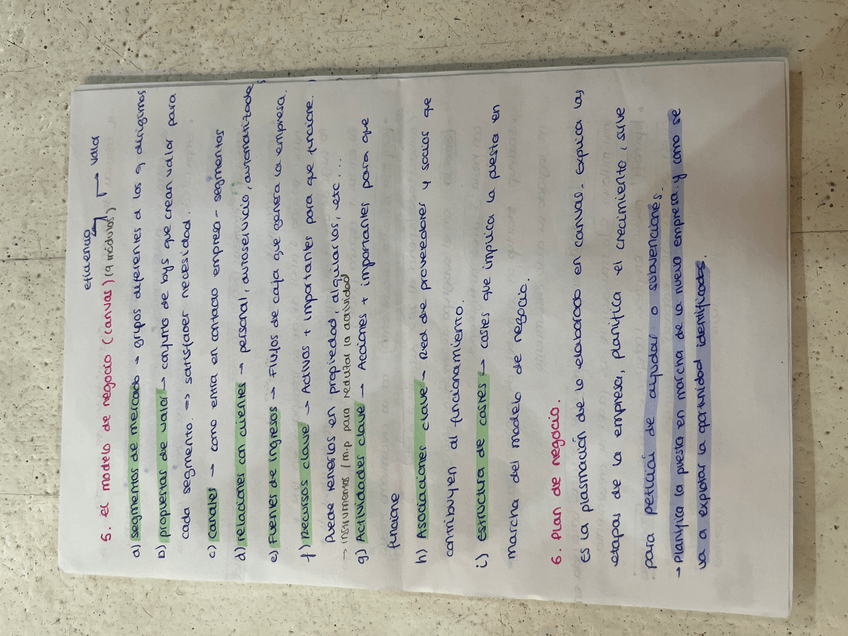 eficiencia valor
5. el modelo de negocio (canvas) (9 módulos)
a) segmentos de mercado → grupos diferentes a los q dirigirnos
b) propuestas de valor → conjunto de bqs que crean valor para
cada segmento. => satisfacer necesidad.
c) canales → como entra en contacto empresa - segmentos
d) relaciones con clientes → personal, autoservicio, automatizados
e) Fuentes de ingresos → Flujos de caja que genera la empresa.
f) Recursos clave → Activos + importantes para que funcione.
Puede tenerlos en propiedad, alquilarlos, etc...
→ instrumentos / m.p para realizar la actividad
g) Actividades clave → Acciones + importantes para que
funcione
h) Asociaciones clave → Red de proveedores y socios que
contribuyen al funcionamiento.
i) estructura de costes → costes que implica la puesta en
marcha del modelo de negocio.
6. Plan de negocio.
Es la plasmación de lo elaborado en canvas. Explica las
etapas de la empresa, planifica el crecimiento, sirve
para petición de ayudas o subvenciones.
→ Planifica la puesta en marcha de la nueva empresa y como se
va a explotar la oportunidad identificada.